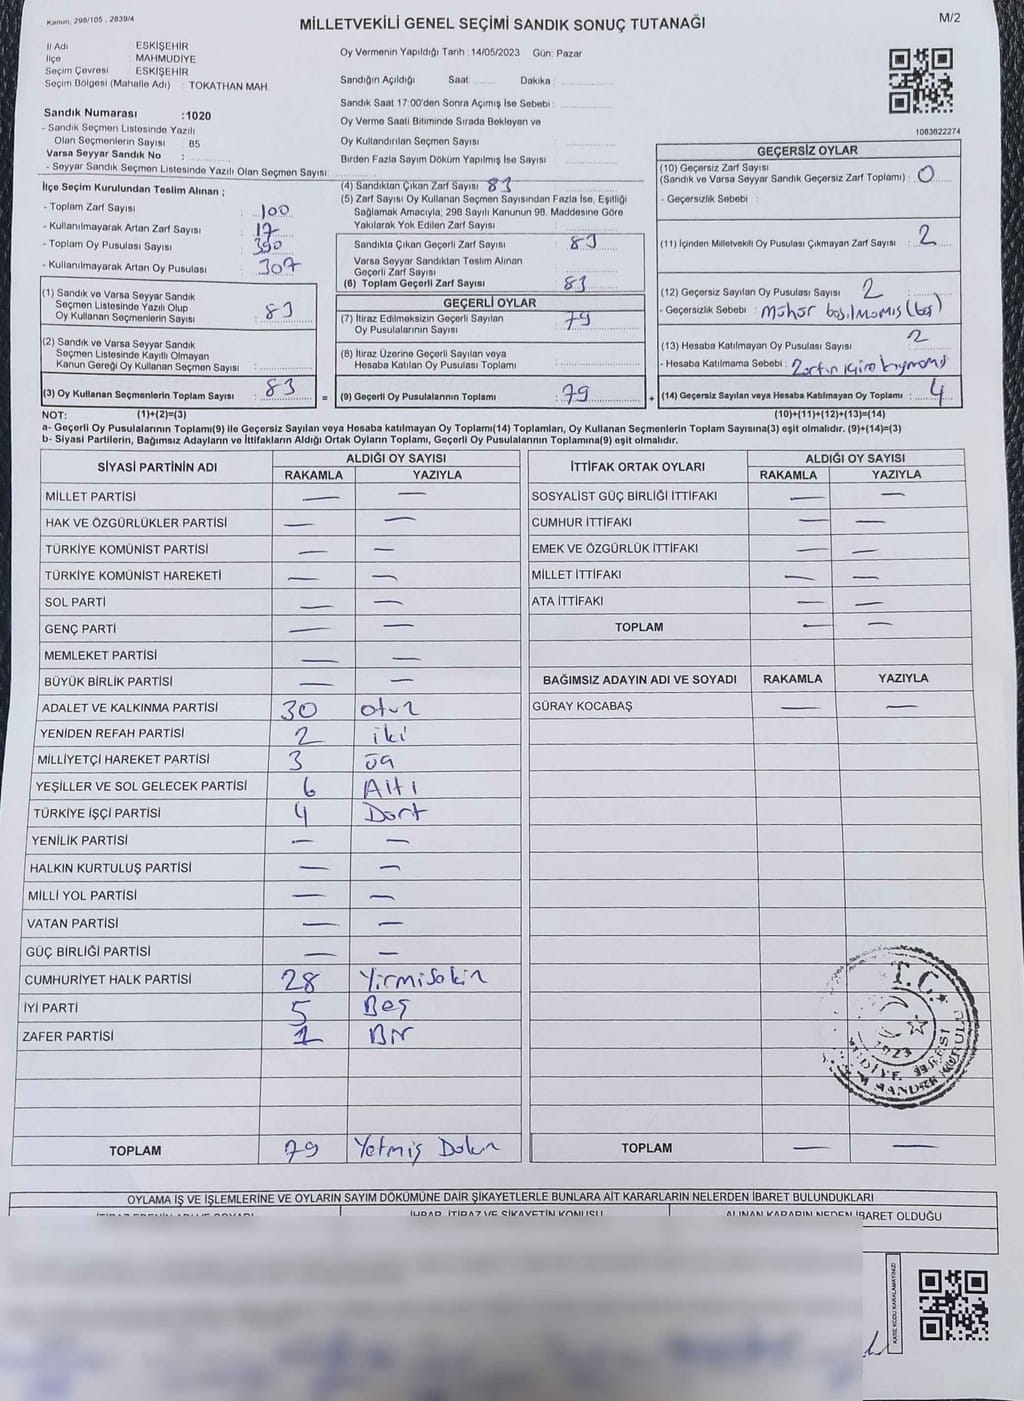 Kanun, 298/105 , 2839/4
MİLLETVEKİLİ GENEL SEÇİMİ SANDIK SONUÇ TUTANAĞI
M/2
İl Adı ESKİŞEHİR
İlçe MAHMUDİYE
Seçim Çevresi ESKİŞEHİR
Seçim Bölgesi (Mahalle Adı) : TOKATHAN MAH.
Oy Vermenin Yapıldığı Tarih : 14/05/2023 Gün: Pazar
Sandığın Açıldığı Saat: Dakika :
Sandık Saat 17:00'den Sonra Açımış İse Sebebi :
Oy Verme Saati Bitiminde Sırada Bekleyen ve
Oy Kullandırılan Seçmen Sayısı :
Birden Fazla Sayım Döküm Yapılmış İse Sayısı :
1083622274
Sandık Numarası :1020
- Sandık Seçmen Listesinde Yazılı
Olan Seçmenlerin Sayısı : 85
Varsa Seyyar Sandık No :
- Seyyar Sandık Seçmen Listesinde Yazılı Olan Seçmen Sayısı:
İlçe Seçim Kurulundan Teslim Alınan ;
- Toplam Zarf Sayısı : 100
- Kullanılmayarak Artan Zarf Sayısı : 17
- Toplam Oy Pusulası Sayısı : 390
- Kullanılmayarak Artan Oy Pusulası : 307
(1) Sandık ve Varsa Seyyar Sandık
Seçmen Listesinde Yazılı Olup
Oy Kullanan Seçmenlerin Sayısı : 83
(2) Sandık ve Varsa Seyyar Sandık
Seçmen Listesinde Kayıtlı Olmayan
Kanun Gereği Oy Kullanan Seçmen Sayısı :
(3) Oy Kullanan Seçmenlerin Toplam Sayısı : 83 =
(4) Sandıktan Çıkan Zarf Sayısı 83
(5) Zarf Sayısı Oy Kullanan Seçmen Sayısından Fazla İse, Eşitliği
Sağlamak Amacıyla; 298 Sayılı Kanunun 98. Maddesine Göre
Yakılarak Yok Edilen Zarf Sayısı :
Sandıkta Çıkan Geçerli Zarf Sayısı : 83
Varsa Seyyar Sandıktan Teslim Alınan
Geçerli Zarf Sayısı :
(6) Toplam Geçerli Zarf Sayısı : 83
GEÇERLİ OYLAR
(7) İtiraz Edilmeksizin Geçerli Sayılan
Oy Pusulalarının Sayısı : 79
(8) İtiraz Üzerine Geçerli Sayılan veya
Hesaba Katılan Oy Pusulası Sayısı :
(9) Geçerli Oy Pusulalarının Toplamı : 79 +
GEÇERSİZ OYLAR
(10) Geçersiz Zarf Sayısı
(Sandık ve Varsa Seyyar Sandık Geçersiz Zarf Toplamı) : 0
- Geçersizlik Sebebi :
(11) İçinden Milletvekili Oy Pusulası Çıkmayan Zarf Sayısı : 2
(12) Geçersiz Sayılan Oy Pusulası Sayısı : 2
- Geçersizlik Sebebi : mühür basılmamış (boş)
(13) Hesaba Katılmayan Oy Pusulası Sayısı : 2
- Hesaba Katılmama Sebebi : Zarfın içine koymamış
(14) Geçersiz Sayılan veya Hesaba Katılmayan Oy Toplamı : 4
NOT: (1)+(2)=(3)
(10)+(11)+(12)+(13)=(14)
a- Geçerli Oy Pusulalarının Toplamı(9) ile Geçersiz Sayılan veya Hesaba katılmayan Oy Toplamı(14) Toplamları, Oy Kullanan Seçmenlerin Toplam Sayısına(3) eşit olmalıdır. (9)+(14)=(3)
b- Siyasi Partilerin, Bağımsız Adayların ve İttifakların Aldığı Ortak Oyların Toplamı, Geçerli Oy Pusulalarının Toplamına(9) eşit olmalıdır.
SİYASİ PARTİNİN ADI ALDIĞI OY SAYISI
RAKAMLA YAZIYLA
MİLLET PARTİSİ — —
HAK VE ÖZGÜRLÜKLER PARTİSİ — —
TÜRKİYE KOMÜNİST PARTİSİ — —
TÜRKİYE KOMÜNİST HAREKETİ — —
SOL PARTİ — —
GENÇ PARTİ — —
MEMLEKET PARTİSİ — —
BÜYÜK BİRLİK PARTİSİ — —
ADALET VE KALKINMA PARTİSİ 30 otuz
YENİDEN REFAH PARTİSİ 2 iki
MİLLİYETÇİ HAREKET PARTİSİ 3 üç
YEŞİLLER VE SOL GELECEK PARTİSİ 6 Altı
TÜRKİYE İŞÇİ PARTİSİ 4 Dört
YENİLİK PARTİSİ — —
HALKIN KURTULUŞ PARTİSİ — —
MİLLİ YOL PARTİSİ — —
VATAN PARTİSİ — —
GÜÇ BİRLİĞİ PARTİSİ — —
CUMHURİYET HALK PARTİSİ 28 Yirmisekiz
İYİ PARTİ 5 Beş
ZAFER PARTİSİ 1 Bir
TOPLAM 79 Yetmiş Dokuz
İTTİFAK ORTAK OYLARI ALDIĞI OY SAYISI
RAKAMLA YAZIYLA
SOSYALİST GÜÇ BİRLİĞİ İTTİFAKI — —
CUMHUR İTTİFAKI — —
EMEK VE ÖZGÜRLÜK İTTİFAKI — —
MİLLET İTTİFAKI — —
ATA İTTİFAKI — —
TOPLAM — —
BAĞIMSIZ ADAYIN ADI VE SOYADI RAKAMLA YAZIYLA
GÜRAY KOCABAŞ — —
T.C.
1923
TOPLAM — —
OYLAMA İŞ VE İŞLEMLERİNE VE OYLARIN SAYIM DÖKÜMÜNE DAİR ŞİKAYETLERLE BUNLARA AİT KARARLARIN NELERDEN İBARET BULUNDUKLARI
İTİRAZ EDENİN ADI VE SOYADI İHBAR, İTİRAZ VE ŞİKAYETİN KONUSU ALINAN KARARIN NEDEN İBARET OLDUĞU
KARE KODU KARALAMAYINIZ!